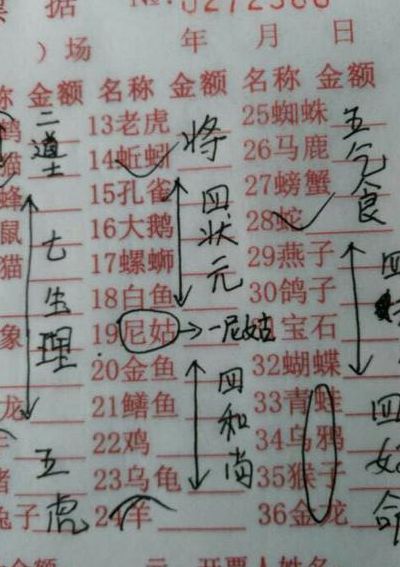 票 据 №:5272568
)场 年 月 日
称 金额 名称 金额 名称 金额
二道士 13老虎 将 25蜘蛛 五乞食
猫 14蚯蚓 26马鹿
蜂 15孔雀 四状元 27螃蟹
鼠 16大鹅 28蛇
猫 七生理 17螺蛳 29燕子
18白鱼 30鸽子
象 19尼姑 一尼姑 宝石
20金鱼 四和尚 32蝴蝶
龙 21鳝鱼 33青蛙 四好命
22鸡 34乌鸦
五虎 23乌龟 35猴子
兔子 2 羊 36金龙
金额 元 开票人姓名